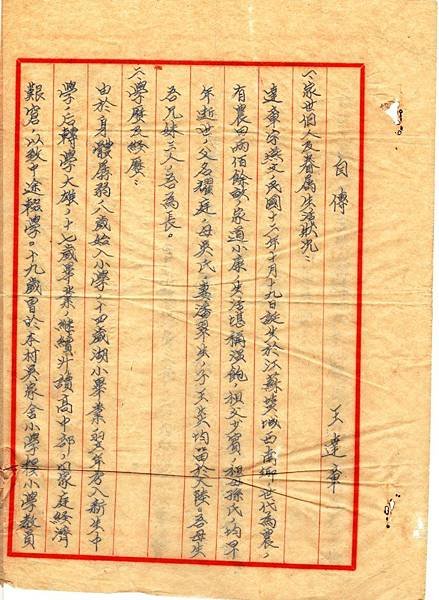 自傳
王達章
一、家世個人及眷屬生活狀況：
達章字燕文民國十六年十月十九日誕生於江蘇鹽城西高鄉，世代為農，
有農田兩佰餘畝，家道小康，生活堪稱溫飽，祖父少賓，祖母孫氏，均早
年逝世，父名耀庭，母吳氏，妻潘翠英，子玉英均留於大陸。吾母生
吾兄妹三人，吾為長。
二、學歷及經歷：
由於身體孱弱，八歲始入小學，十四歲湖小畢業，翌年考入新生中
學，后轉學大雄，十七歲畢業，繼續升讀高中部，因家庭經濟
艱窘，以致中途輟學。十九歲曾於本村吳家舍小學獏小學教員